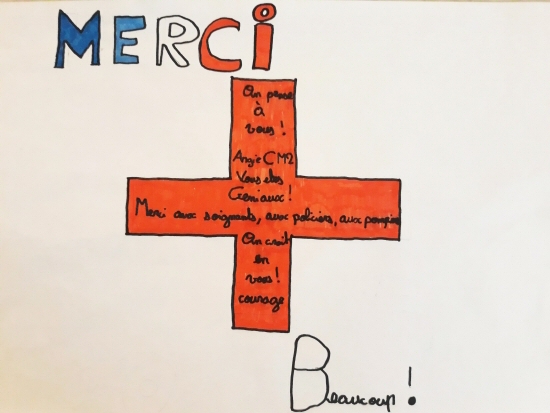 MERCi
On pense
à
vous !
Angie CM2
Vous êtes
Géniaux !
Merci aux soignants, aux policiers, aux pompiers
On croit
en
vous !
courage
Beaucoup !